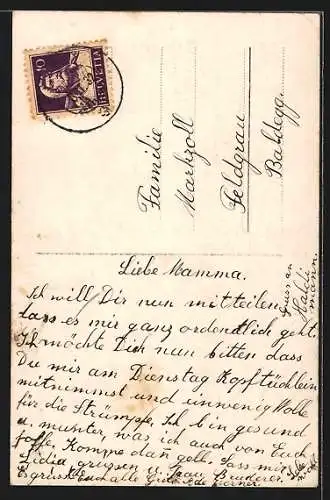 10
HELVETIA
Familie
Markzoll
Feldgrau
Baldegg
Liebe Mamma.
Ich will Dir nun mitteilen
dass es mir ganz ordentlich geht.
Ich möchte Dich nun bitten dass
Du mir am Dienstag Kopftüchlein
mitnimmst und einwenig Wolle
für die Strümpfe. Ich bin gesund
u. munter, was ich auch von Euch
hoffe. Komme dan gelb. Lass mir
Lidia grüssen u. Frau
Es grüsst Euch alle
Gruss an